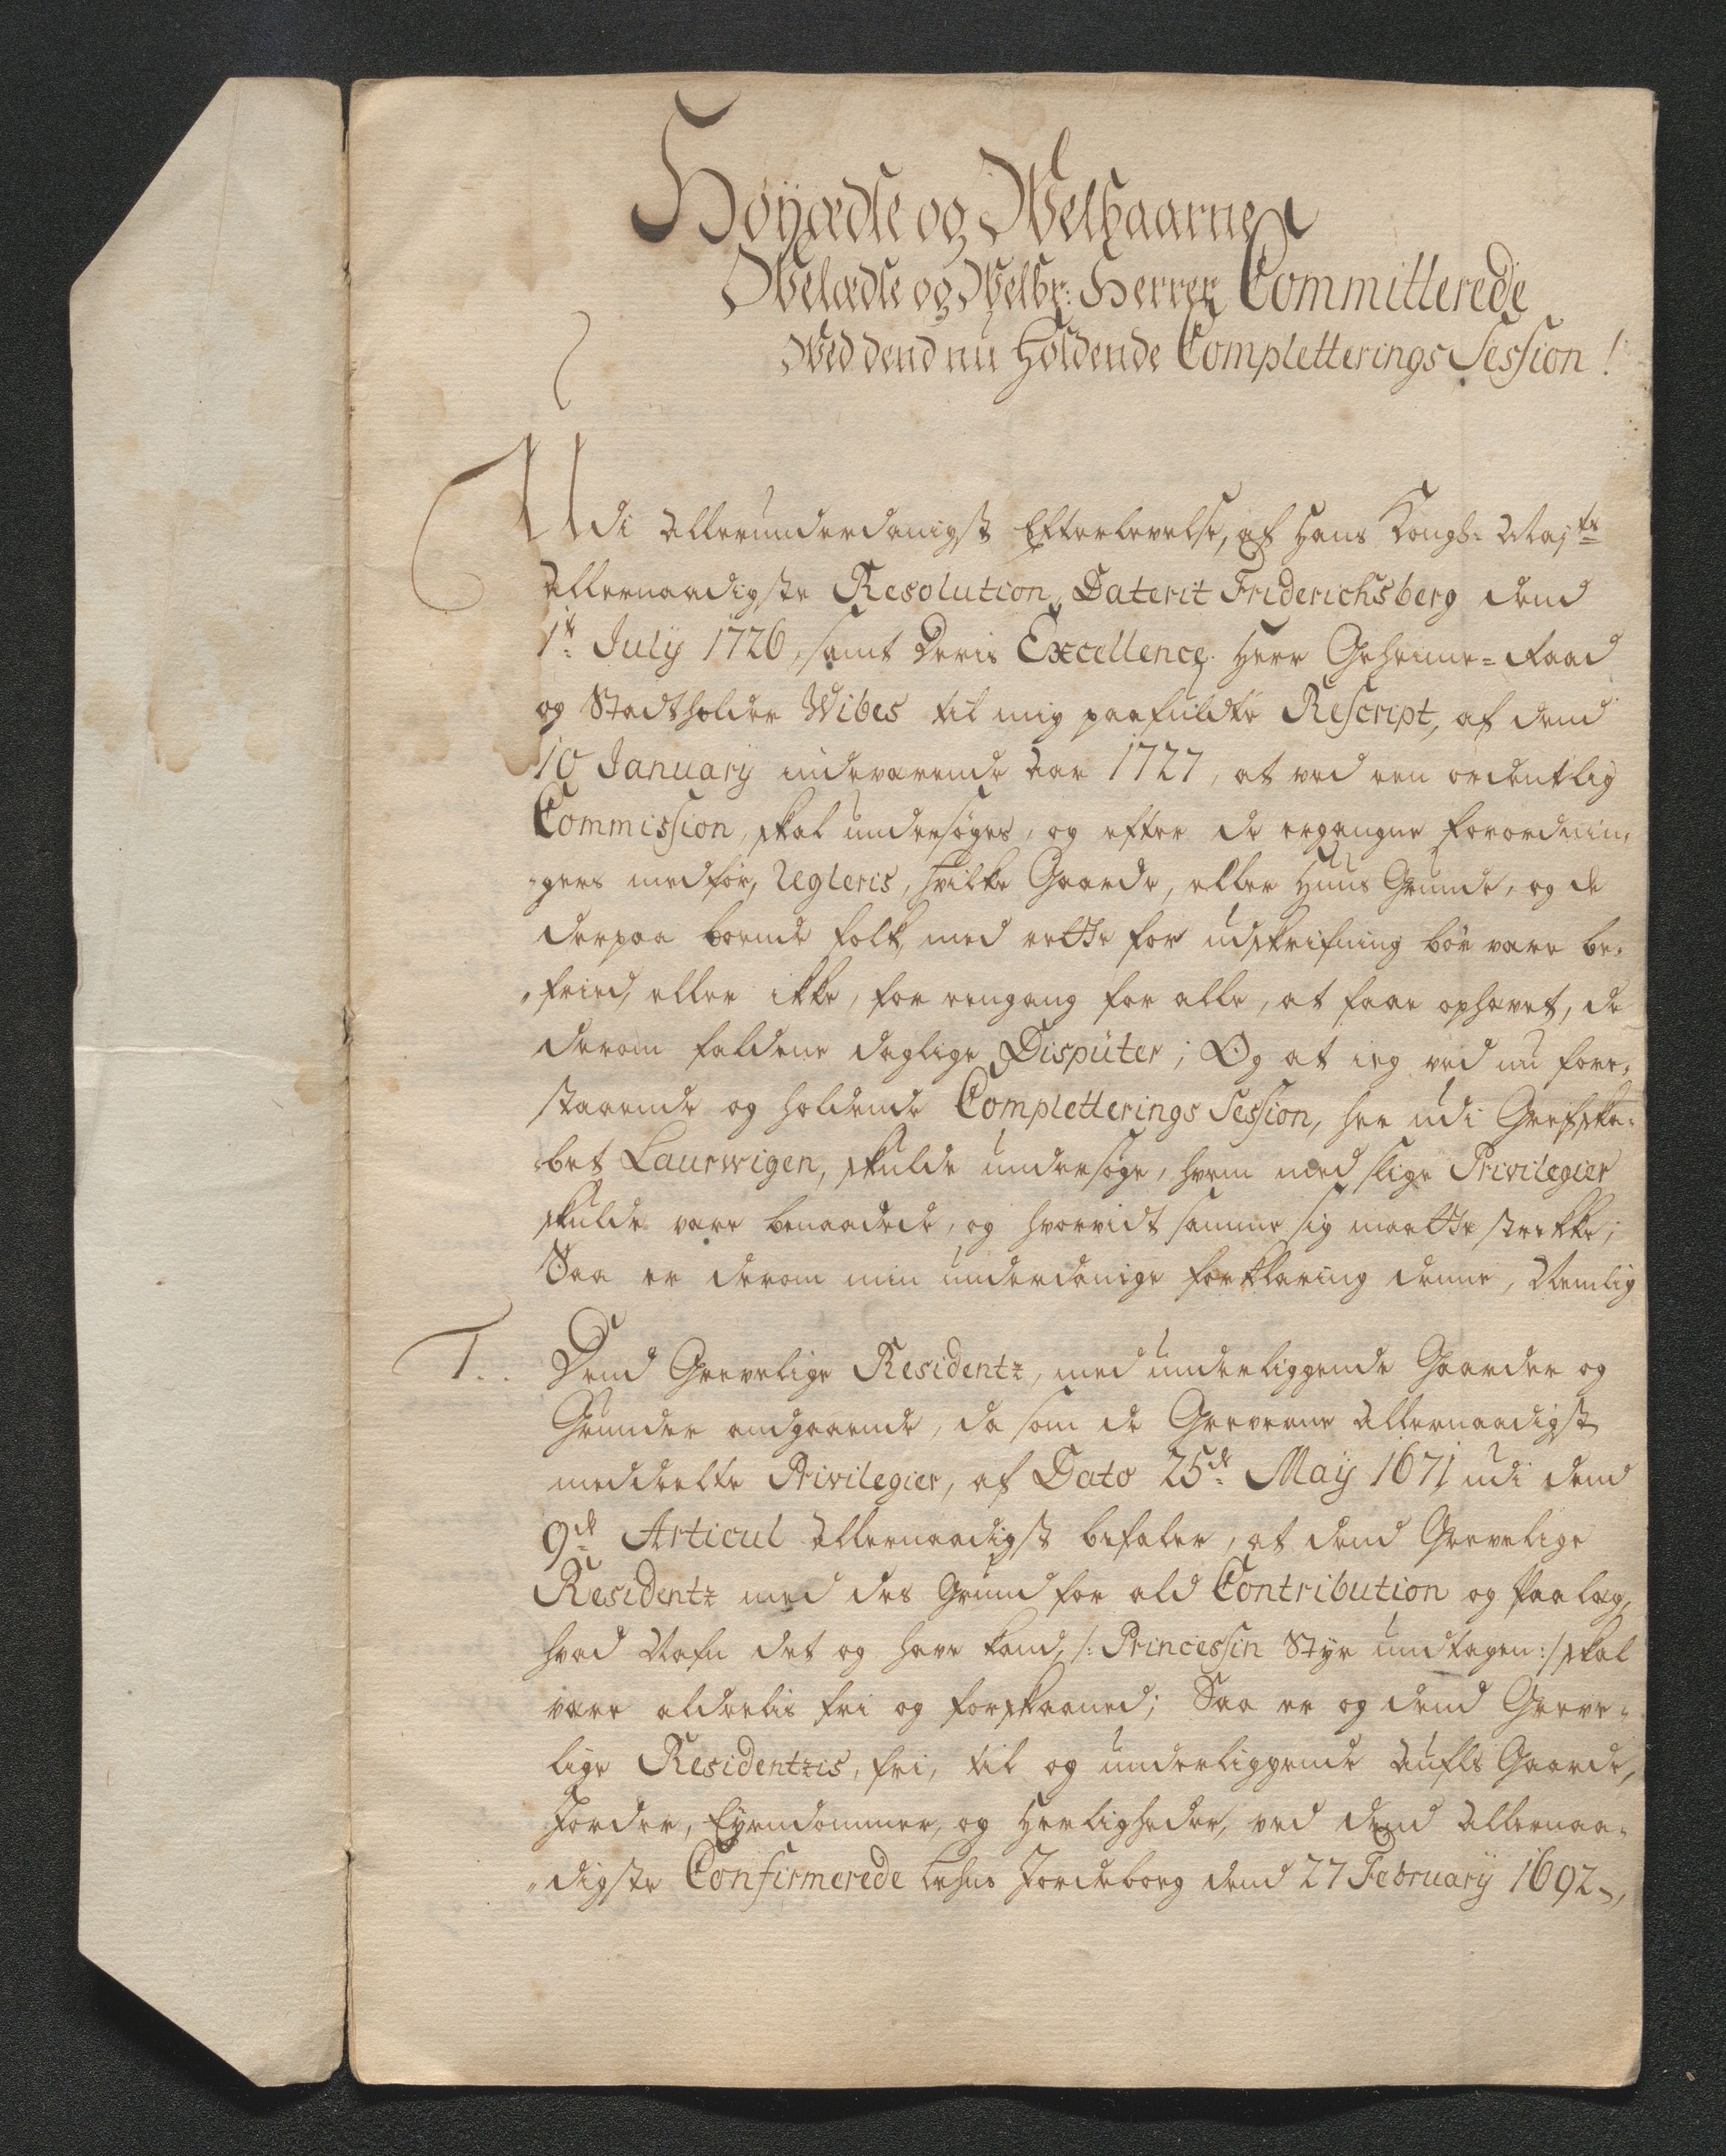 Höyædle og Welbaarne
Welædle og Welbr: Herrer Committerede
Wed dend nu holdende Completterings Session!
Udi allerunderdanigst Efterlevelse, af Hans Kongl: Maj^ts
allernaadigste Resolution, Daterit Friderichsberg dend
1^t July 1726, samt Deris Excellence Herr Geheime=Raad
og Stadtholder Wibes till mig paafuldte Rescript, af dend
10 January indeværende Aar 1727, at ved een ordentlig
Commission, skal undersøges, og efter de ergangne forordnin,
gers medför, Regleris, hvilke Gaarde, eller Huus Grunde, og de
derpaa boende folk, med rette for udskrifning bör være be,
„fried, eller ikke, for eengang for alle, at faae ophævet, de
derom faldene daglige Dispüter; Og at ieg ved nu fore,
staaende og holdende Completterings Session, her udi Grefska,
bet Laurwigen, skulde undersøge, hvem med slige Privilegier
skulde være benaadede, og hvorvidt samme sig maatte strekke;
Saa er derom min underdanige forklaring denne, Nemlig
1. Dend Grevelige Residentz, med underliggende Gaarder og
Grunder andgaaende, da som de Greverne allernaadigst
meddeelte Privilegier, af Dato 25^de May 1671 udi dend
9^de Articul allernaadigst befaler, at dend Grevelige
Residentz med des Grund for ald Contribution og Paalæg,
hvad Nafn det og have kand, /: Princessin Styr undtagen:/ skal
være alderlis fri og forskaaned; Saa er og dend Greve,
lige Residentzis, fri, til og underliggende Aufls Gaarde,
Jorder, Eyendommer, og Herligheder, ved dend allernaa,
„digste Confirmerede Lehns Jordeborg dend 27 February 1692,